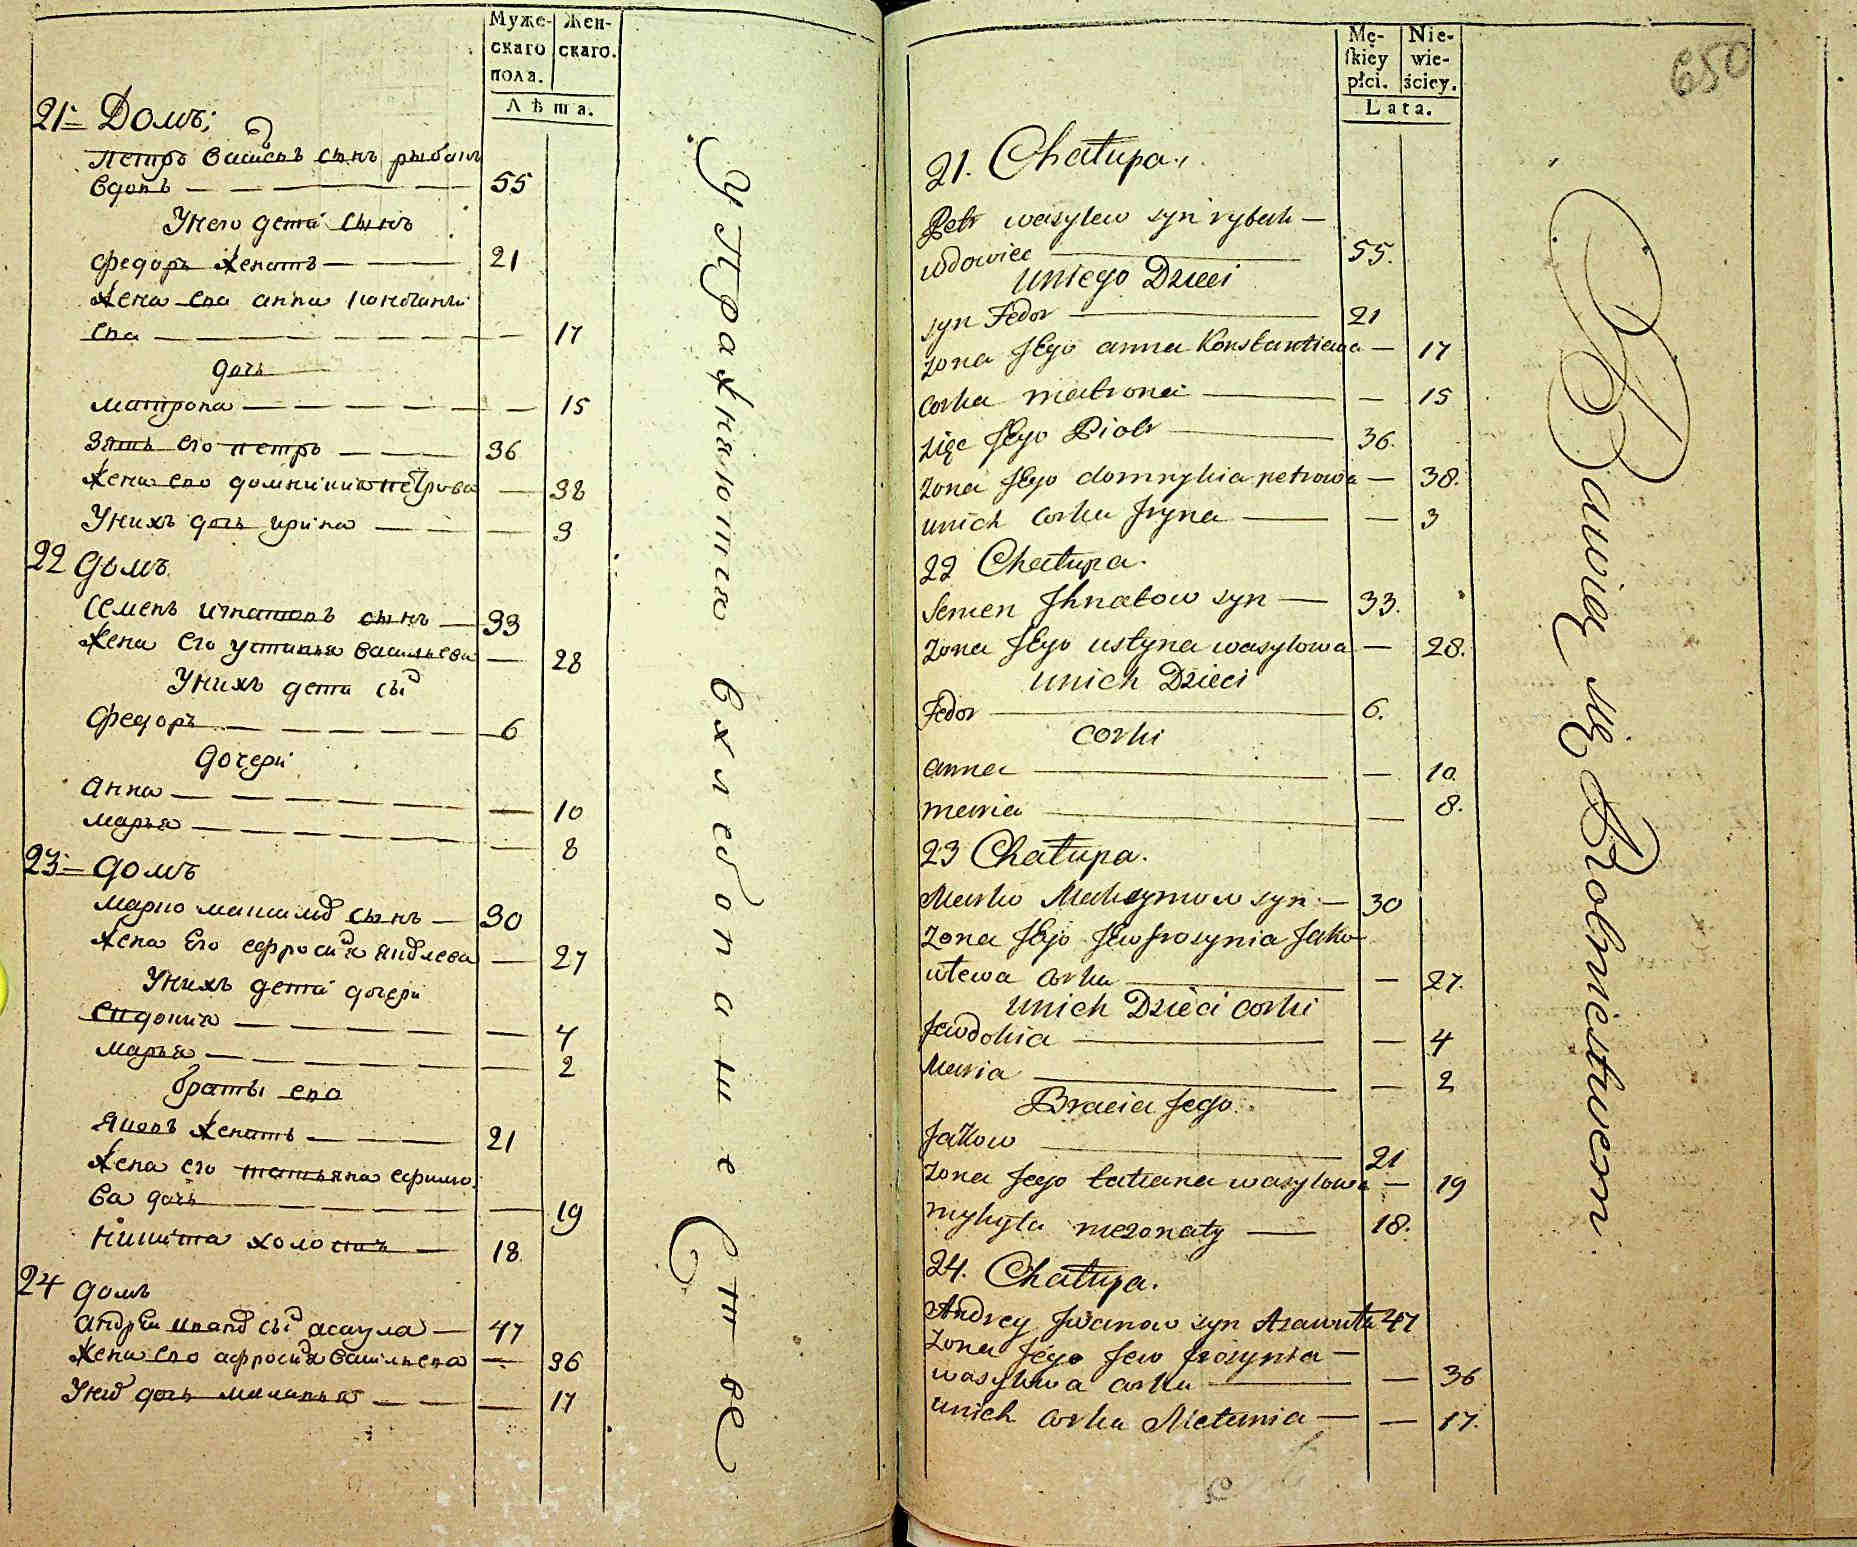 Муже-
скаго
пола.
Жен-
скаго.
Лѣта.
21 Домъ;
Петръ Васильевъ сынъ рыбакъ
вдовъ 55
У него дети сынъ
Федоръ женатъ 21
Жена его анна константи
ева 17
дочь
матрона 15
Зять его петръ 36
Жена его домникия петрова 38
У нихъ дочь ирина 3
22 домъ
Семенъ игнатовъ сынъ 33
Жена его устинья васильева 28
У нихъ дети сы
Федоръ 6
Дочери
Анна 10
марья 8
23 домъ
марко максимов сынъ 30
Жена его ефросиня яковлева 27
У нихъ дети дочери
евдокия 4
марья 2
братья его
яковъ женатъ 21
Жена его татьяна ефимо
ва дочь 19
никита холостъ 18
24 домъ
андрей иванов сы асаула 47
Жена его афросиня васильева 36
У них дочь миланья 17
Упражняются в хлебопашестве
650
Mę-
skiey
płci.
Nie-
wie-
ściey.
Lata.
21. Chałupa.
Petr wasylew syn rybak
wdowiec 55.
uniego Dzieci
syn Fedor 21
zona Jego anna Konstantiewa 17
corka matrona 15
zięc Jego Piotr 36.
zona Jego domnykia petrowa 38.
unich corka Jryna 3
22 Chałupa.
Semen Jhnatow syn 33.
zona Jego ustyna wasylowa 28.
unich Dzieci
Fedor 6.
corki
anna 10.
maria 8.
23 Chałupa.
Marko Maksymow syn 30
zona Jego Jewfrosynia Jako
wlewa corka 27.
unich Dzieci corki
Jewdokia 4
Maria 2
Bracia Jego.
Jakow 21
zona Jego tatiana wasylowa 19
mykyta niezonaty 18.
24. Chałupa.
Andrey Jwanow syn Asawuła 47
zona Jego Jewfrosynia
wasylewa corka 36
unich corka Mełania 17.
Bawią się Rolnictwem